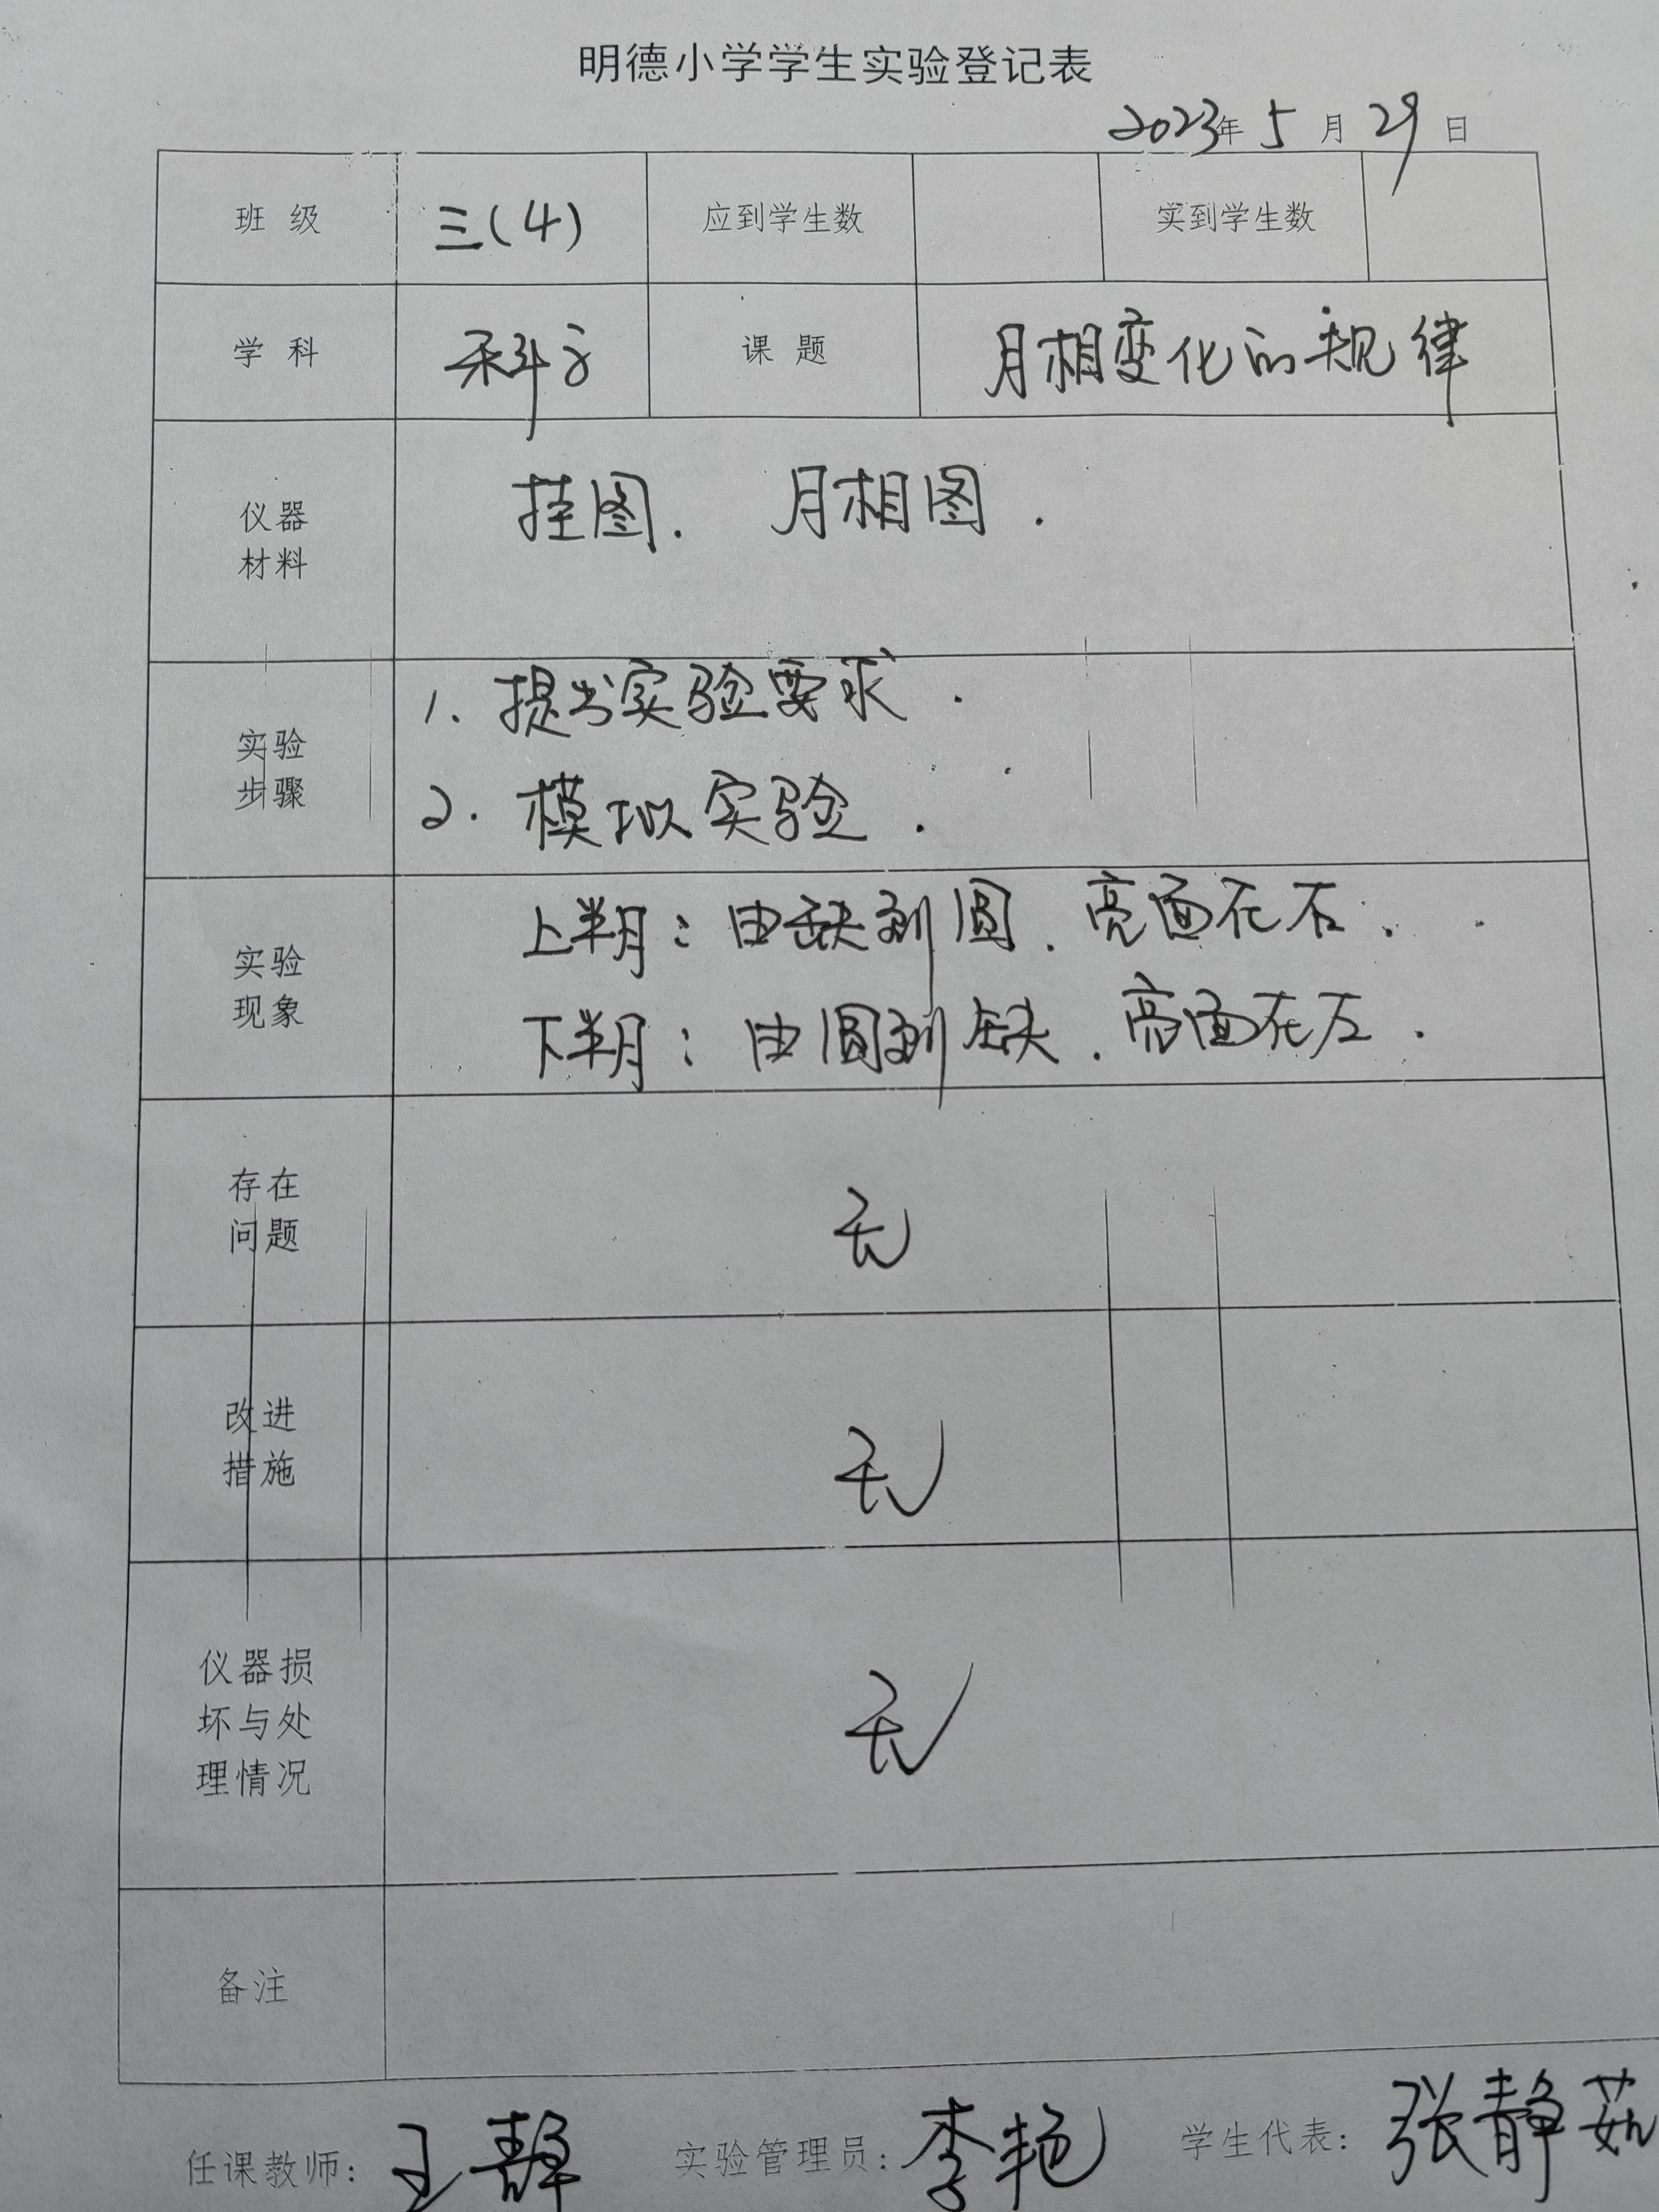 明德小学学生实验登记表
2023年 5 月 29 日
班 级 三(4) 应到学生数 实到学生数
学 科 科学 课 题 月相变化的规律
仪器
材料
挂图. 月相图.
实验
步骤
1. 提出实验要求.
2. 模拟实验.
实验
现象
上半月: 由缺到圆. 亮面在右.
下半月: 由圆到缺. 亮面在左.
存在
问题
无
改进
措施
无
仪器损
坏与处
理情况
无
备注
任课教师: 王静 实验管理员: 李艳 学生代表: 张静茹